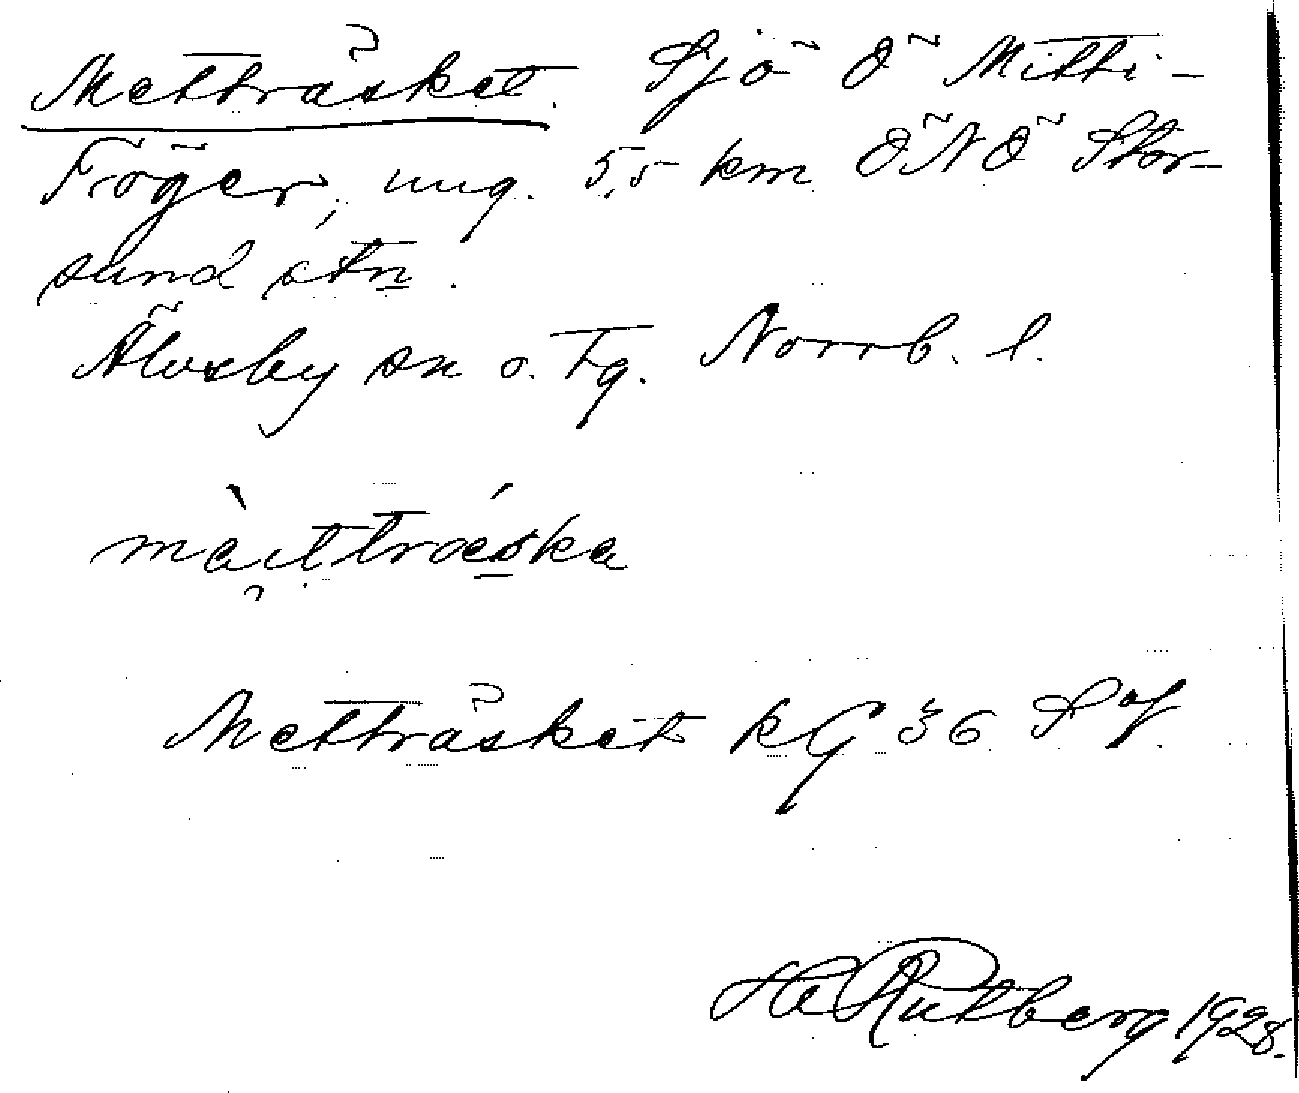 Metträsket. Sjö Ö Mitti-
Fröger, ung. 5,5 km ÖNÖ Stor-
sund stn.
Älvsby sn o. tg. Norrb. l.
mètträska
Metträsket kG 36 SV
He Rutberg 1928.